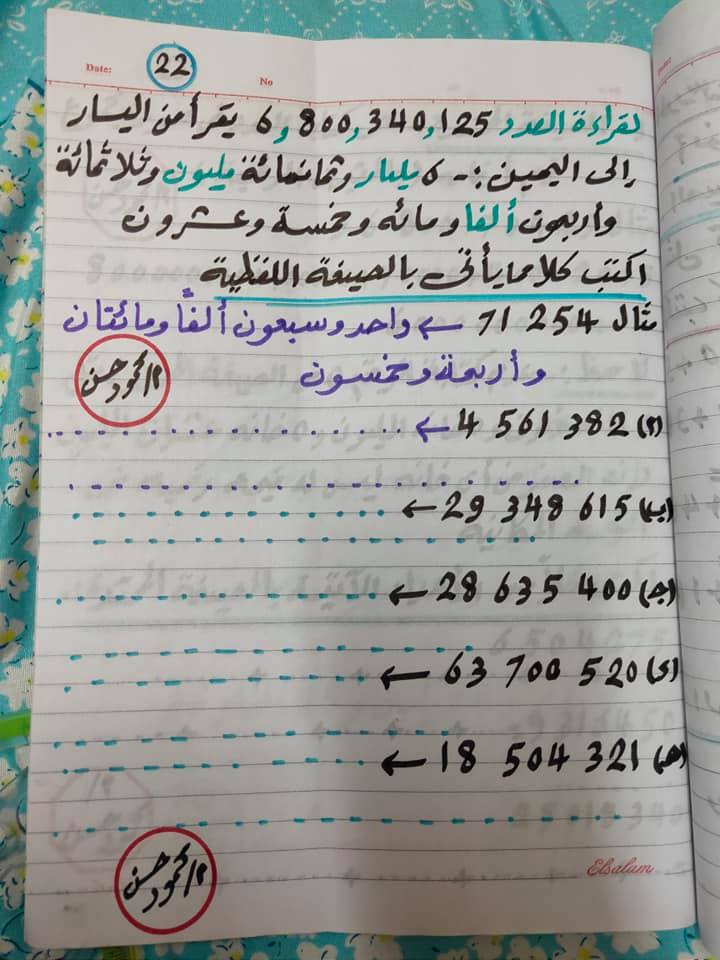 Date:
22
No
لقراءة العدد 6,800,340,125 يقرأ من اليسار
إلى اليمين :- 6 مليار وثمانمائة مليون وثلاثمائة
وأربعون ألفا ومائه وخمسة وعشرون
اكتب كلا مما يأتى بالصيغة اللفظية
مثال 71 254 ← واحد وسبعون ألفًا ومائتان
وأربعة وخمسون
م/ محمود حسن
(أ) 4 561 382 ←
(ب) 29 348 615 ←
(جـ) 28 635 400 ←
(د) 63 700 520 ←
(هـ) 18 504 321 ←
م/ محمود حسن
Elsalam